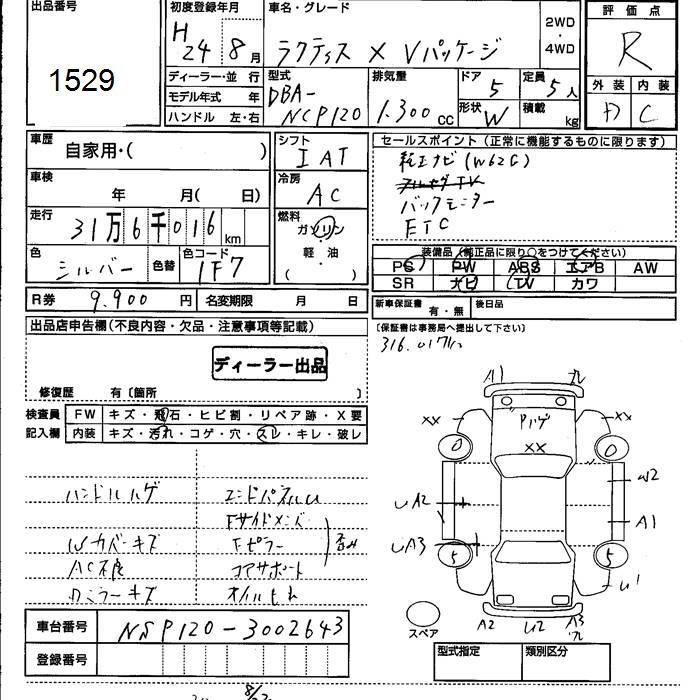 出品番号
1529
初度登録年月
H 24 8月
車名・グレード
ラクティス X Vパッケージ
2WD
・
4WD
評価点
R
外装 内装
D C
ディーラー・並行
モデル年式 年
ハンドル 左・右
型式
DBA-
NCP120
排気量
1.300cc
ドア
5
定員
5人
形状 W
積載
kg
車歴
自家用・( )
車検
年 月( 日)
走行
31万6千016km
色
シルバー
色替
色コード
1F7
シフト
IAT
冷房
AC
燃料
ガソリン
・
軽油
( )
セールスポイント (正常に機能するものに限ります)
純正ナビ(W62G)
フルセグTV
バックモニター
ETC
装備品(純正品に限り○をつけてください)
PS PW ABS エアB AW
SR ナビ TV カワ
R券 9.900円 名変期限 月 日
新車保証書 有・無 後日品
〔保証書は事務局へ提出して下さい〕
316.017km
出品店申告欄(不良内容・欠品・注意事項等記載)
ディーラー出品
修復歴 有〔箇所 〕
検査員
記入欄
FW キズ・飛石・ヒビ割・リペア跡・X要
内装 キズ・汚れ・コゲ・穴・スレ・キレ・破レ
ハンドルハゲ
Wカバーキズ
AC不良
Rミラーキズ
エンドパネルU
Fサイドメンバ
Fピラー
コアサポート
オイルもれ
A1
XX
XX
Pハゲ
XX
W2
A1
UA2
UA3
5
5
U1
A2
U2
A3
スペア
車台番号 NSP120-3002643
登録番号
型式指定 類別区分